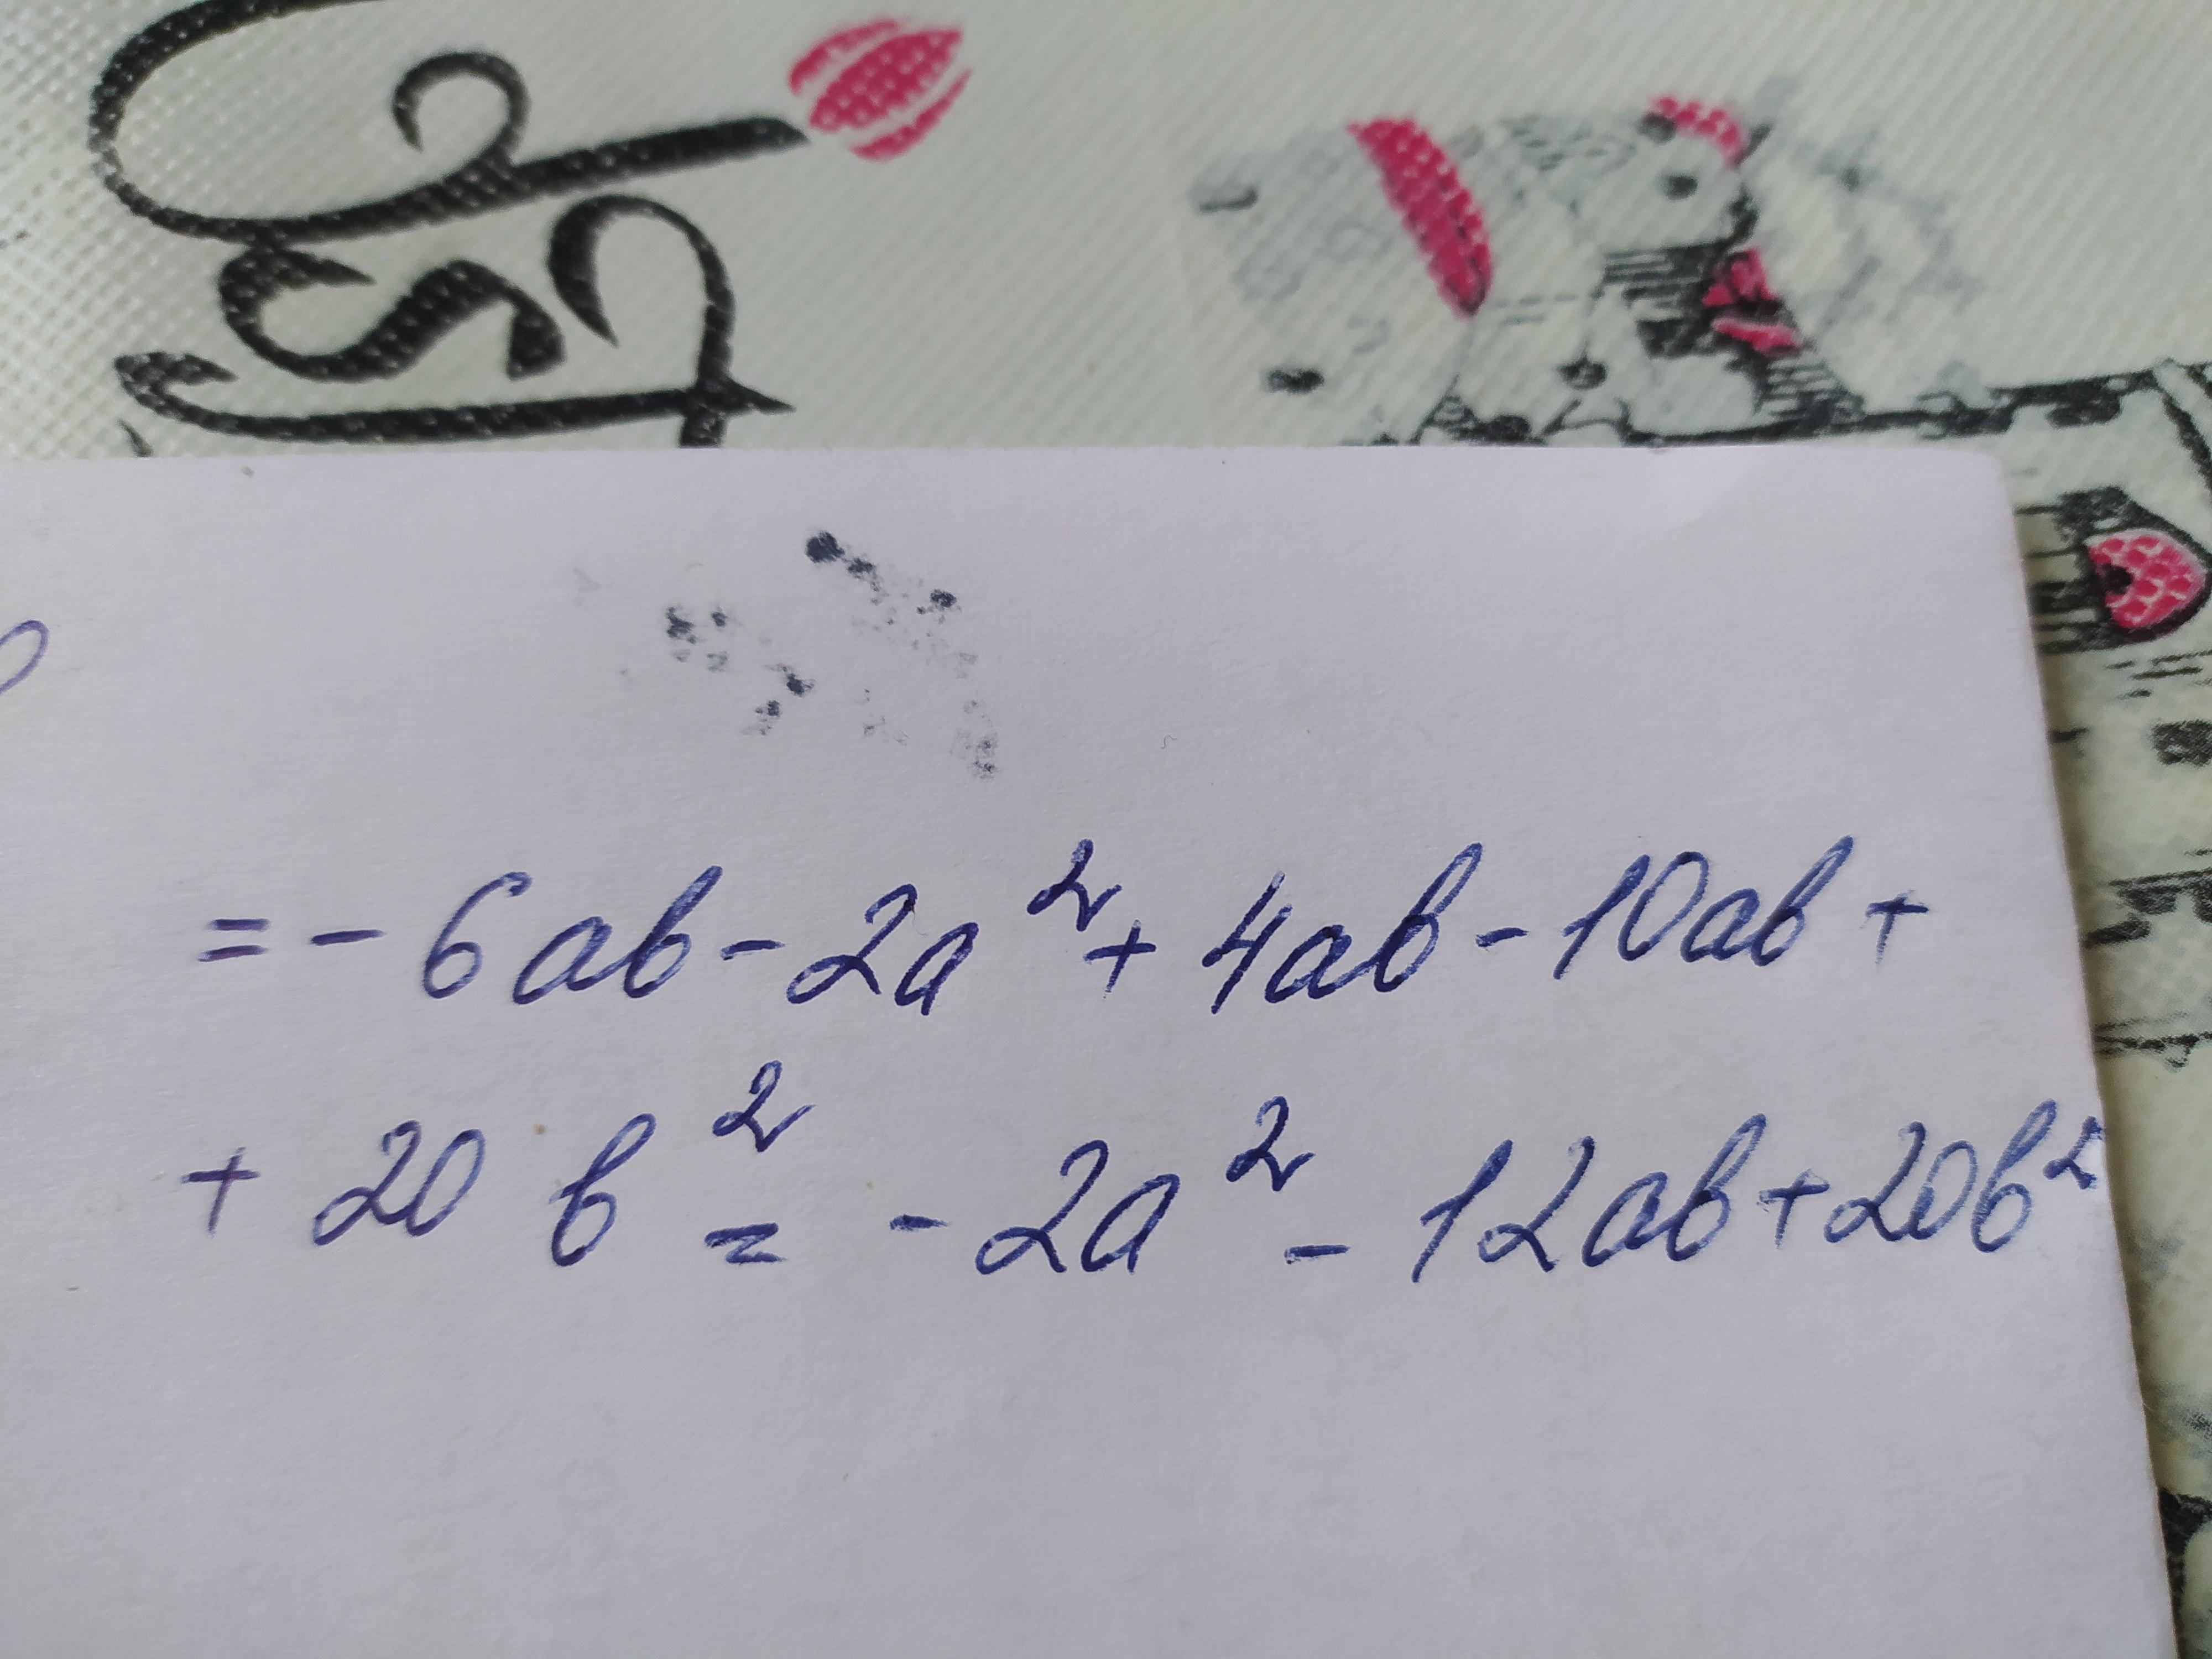 = - 6ab - 2a² + 4ab - 10ab +
+ 20 b² = - 2a² - 12ab + 20b²